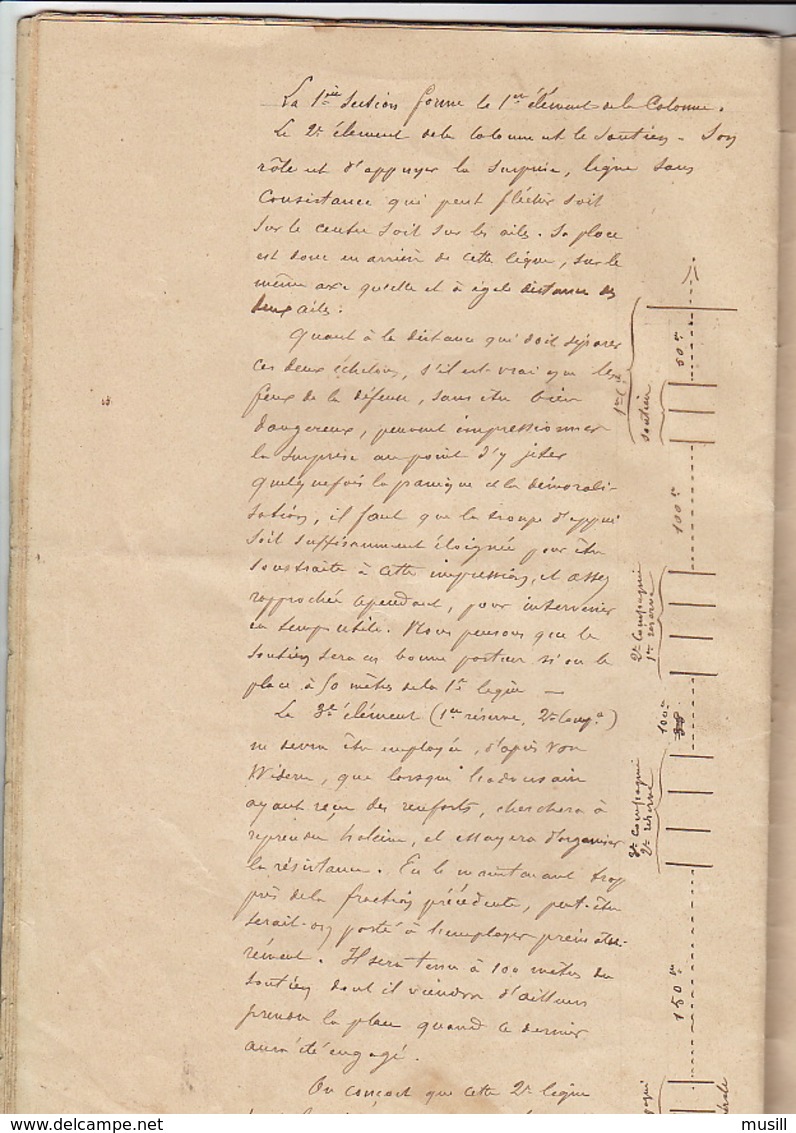 La 1ère Section forme le 1er élément de la Colonne.
Le 2e élément de la colonne est le soutien. Son
rôle est d'appuyer la surprise, ligne sans
consistance qui peut fléchir soit
sur le centre soit sur les ailes. Sa place
est donc en arrière de cette ligne, sur le
même axe qu'elle et à égale distance des
deux ailes.
Quant à la distance qui doit séparer
ces deux échelons, s'il est vrai que les
feux de la défense, sans être bien
dangereux, peuvent impressionner
la surprise au point d'y jeter
quelquefois la panique et la démorali-
sation, il faut que la troupe d'appui
soit suffisamment éloignée pour être
soustraite à cette impression, et assez
rapprochée cependant, pour intervenir
en temps utile. Nous pensons que le
soutien sera en bonne posture si on le
place à 50 mètres de la 1e ligne —
Le 3e élément (1ere réserve, 2e Comp.e)
ne devra être employée, d'après Von
Widern, que lorsque l'adversaire
ayant reçu des renforts, cherchera à
reprendre haleine, et essayera d'organiser
la résistance. En le maintenant trop
près de la fraction précédente, peut-être
serait-on porté à l'employer prématu-
rément. Il sera tenu à 100 mètres du
soutien dont il viendra d'ailleurs
prendre la place quand ce dernier
aura été engagé.
On conçoit que cette 2e ligne
50 m
1re Cie
soutien
100 m
2e Compagnie
1re réserve
100 m
3e Compagnie
2e réserve
150 m
musill